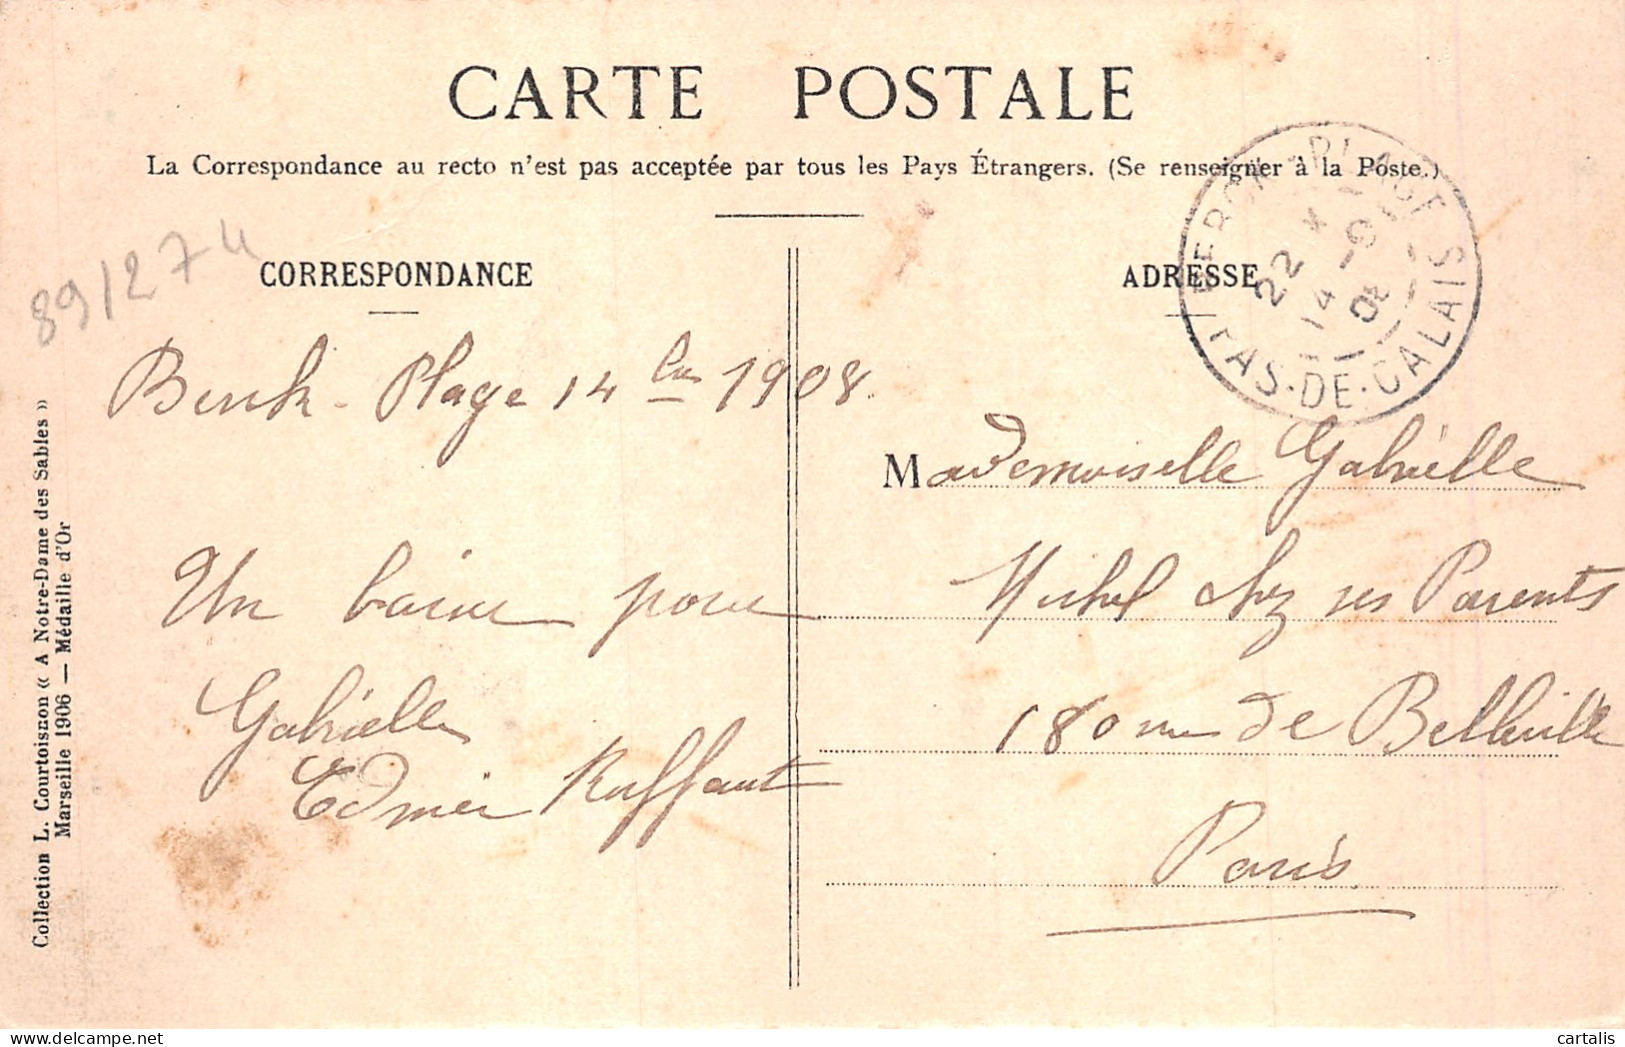 CARTE POSTALE
La Correspondance au recto n'est pas acceptée par tous les Pays Étrangers. (Se renseigner à la Poste.)
89/274
CORRESPONDANCE
Berck-Plage 14 1908.
Un baiser pour
Gabrielle
Edmée Ruffaut
ADRESSE
Mademoiselle Gabrielle
Michel chez ses Parents
180 rue de Belleville
Paris
BERCK-PLAGE
22
14 -9
08
PAS-DE-CALAIS
Collection L. Courtoisnon « A Notre-Dame des Sables »
Marseille 1906 — Médaille d'Or
cartalis